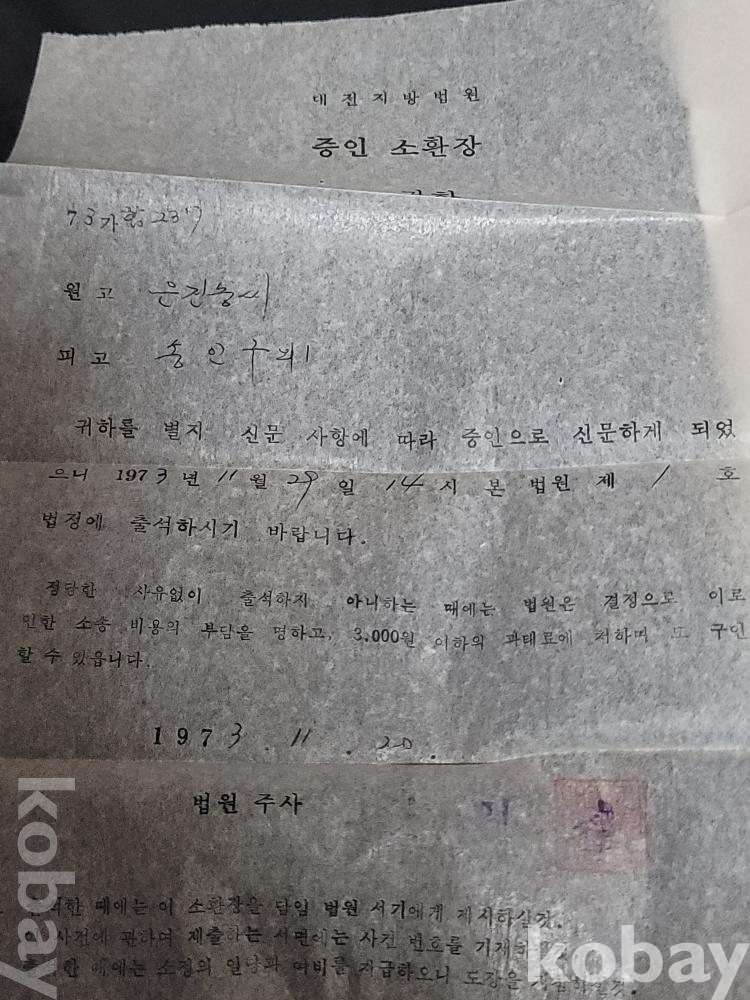 대전지방법원
증인 소환장
73가합237
원고 은진송씨
피고 송인구외1
귀하를 별지 신문 사항에 따라 증인으로 신문하게 되었
으니 1973년 11월 29일 14시 본 법원 제 1 호
법정에 출석하시기 바랍니다.
정당한 사유없이 출석하지 아니하는 때에는 법원은 결정으로 이로
인한 소송 비용의 부담을 명하고, 3.000원 이하의 과태료에 처하며 또 구인
할 수 있읍니다.
1973. 11. 20.
법원 주사
때에는 이 소환장을 담임 법원 서기에게 제시하실것.
사건에 관하여 제출하는 서면에는 사건 번호를 기재하
때에는 소정의 일당과 여비를 지급하오니 도장을
kobay
kobay